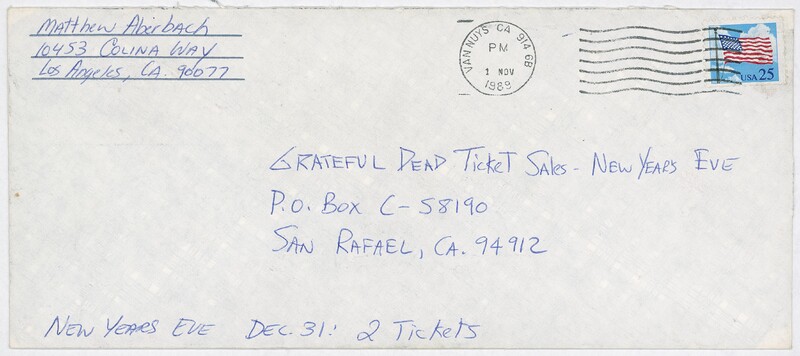 Matthew Aberbach
10453 Colina Way
Los Angeles, CA. 90077
VAN NUYS CA 914 6B
PM
1 NOV
1989
USA 25
Grateful Dead Ticket Sales - New Years Eve
P.O. Box C-58190
San Rafael, CA. 94912
New Years Eve Dec. 31: 2 Tickets